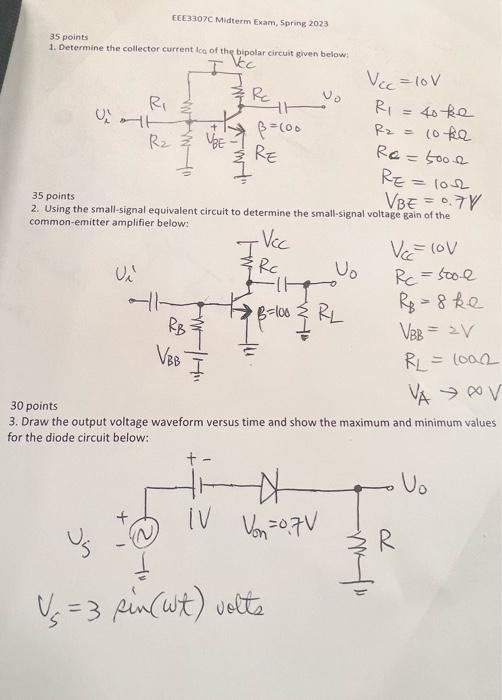 EEE3307C Midterm Exam, Spring 2023
35 points
1. Determine the collector current Icq of the bipolar circuit given below:
Vcc
Rc
Uo
Ui
R1
R2
VBE
+
-
β=100
RE
Vcc = 10V
R1 = 40 kΩ
R2 = 10 kΩ
Rc = 500Ω
RE = 10Ω
VBE = 0.7V
35 points
2. Using the small-signal equivalent circuit to determine the small-signal voltage gain of the
common-emitter amplifier below:
Vcc
Rc
Uo
Ui
RB
β=100
RL
VBB
Vcc = 10V
Rc = 500Ω
RB = 8 kΩ
VBB = 2V
RL = 100Ω
VA → ∞ V
30 points
3. Draw the output voltage waveform versus time and show the maximum and minimum values
for the diode circuit below:
+ -
Uo
1V
Von=0.7V
+
-
Us
R
Vs = 3 sin(wt) volts